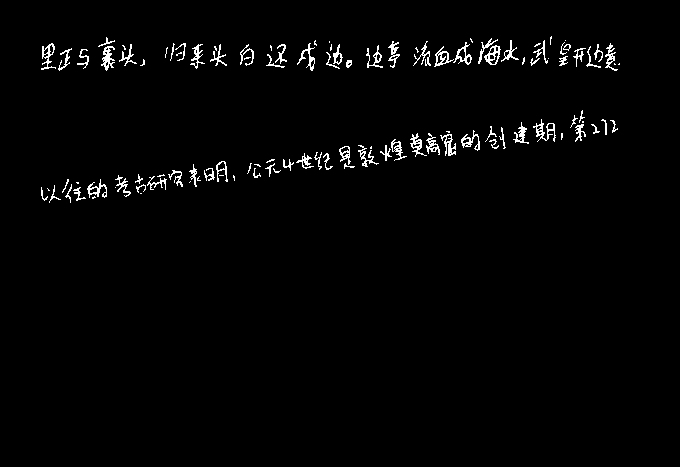 里正与裹头,归来头白还戍边。边亭流血成海水,武皇开边意
以往的考古研究表明,公元4世纪是敦煌莫高窟的创建期,第272